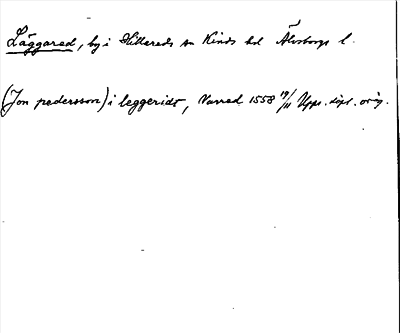 Läggared, by i Hillareds sn Kinds hd Älvsborgs l.
(Jon pedersson) i leggeridt, Varred 1558 19/11 Upps. dipl. orig.